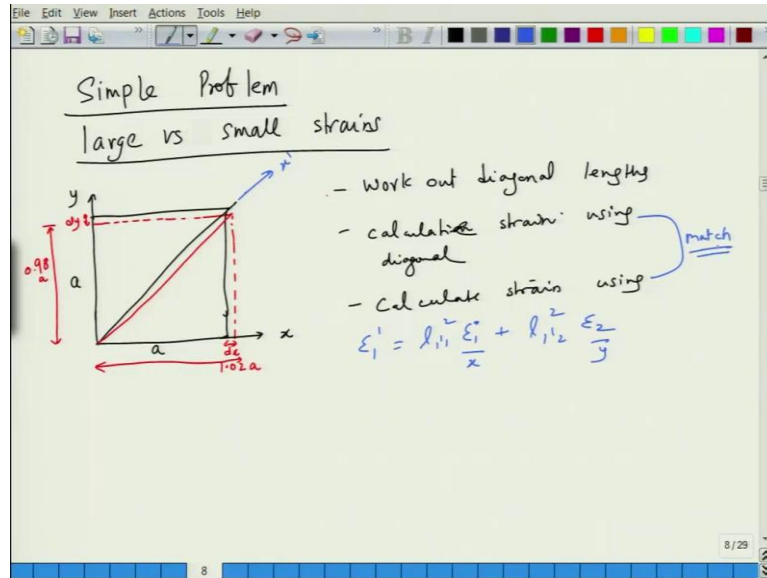 File Edit View Insert Actions Tools Help
Simple Problem
large vs small strains
x'
y
dy
0.98
a
a
a
dx
1.02a
x
- Work out diagonal lengths
- calculate strain using
diagonal
match
- Calculate strain using
ε₁' = l₁'₁² ε₁ + l₁'₂² ε₂
x y
8/29
8